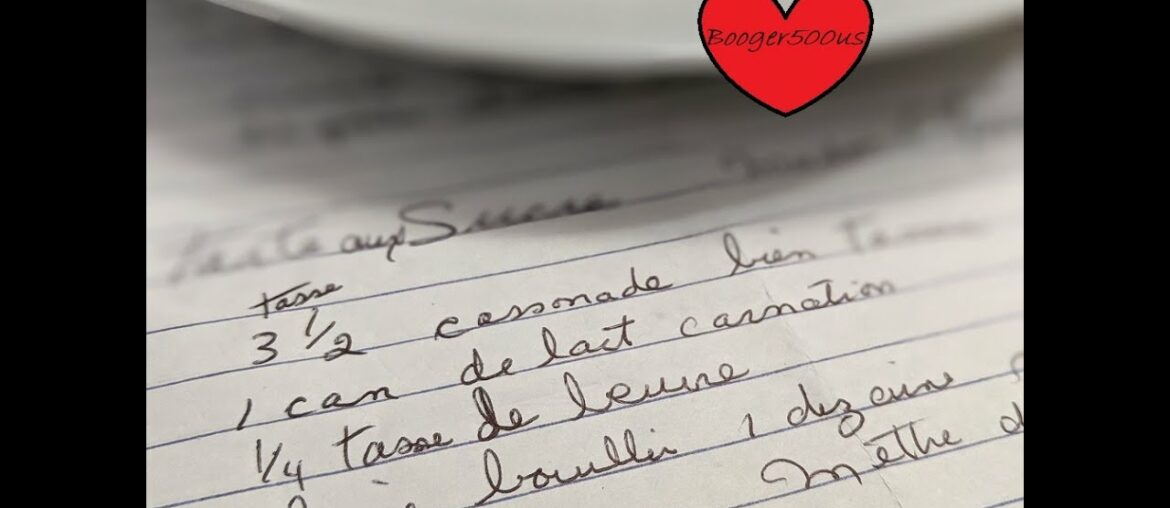 Booger500us
Tarte aux Sucre
tasse
3 1/2 cassonade bien
1 can de lait carnation
1/4 tasse de beurre
bouillir 1 dizaine
Methe